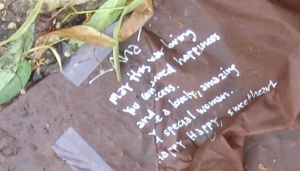 May this year bring
you continued happiness
and success.
a lovely, amazing
special woman.
Happy Happy, sweetheart